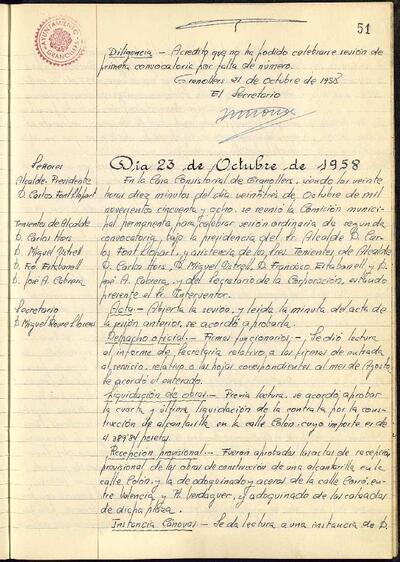 51
AYUNTAMIENTO
GRANOLLERS
Diligencia.- Acredito que no ha podido celebrarse sesión de
primera convocatoria por falta de número.
Granollers 21 de Octubre de 1958
El Secretario
Señores
Alcalde-Presidente
D. Carlos Font Llopart
Tenientes de Alcalde
D. Carlos Hors
D. Miguel Ustrell
D. Fco. Estabanell
D. José A. Cabrera
Secretario
D. Miguel Roure Llorens
Día 23 de Octubre de 1958
En la Casa Consistorial de Granollers, siendo las veinte
horas diez minutos del día veintitres de Octubre de mil
novecientos cincuenta y ocho, se reunió la Comisión munici-
pal permanente para celebrar sesión ordinaria de segunda
convocatoria, bajo la presidencia del Sr. Alcalde D. Car-
los Font Llopart, y asistencia de los tres Tenientes de Alcalde
D. Carlos Hors, D. Miguel Ustrell, D. Francisco Estabanell y D.
José A. Cabrera, y del Secretario de la Corporación, estando
presente el Sr. Interventor.
Acta.- Abierta la sesión, y leida la minuta del acta de
la sesión anterior, se acordó aprobarla.
Despacho oficial.- Firmas funcionarios.- Se dió lectura
al informe de Secretaría relativo a las firmas de entrada
al servicio, relativo a las hojas correspondientes al mes de Agosto,
se acordó el enterado.
Liquidación de obras.- Previa lectura, se acordó aprobar
la cuarta y última liquidación de la contrata por la cons-
trucción de alcantarilla en la calle Colón, cuyo importe es de
pesetas.
Recepción provisional.- Fueron aprobadas las actas de recepción
provisional de las obras de construcción de una alcantarilla en la
calle Colón, y la de adoquinado y aceras de la calle Cairó, en-
tre Valencia y Pl. Verdaguer, y adoquinado de las calzadas
de dicha plaza.
Instancia Cánovas.- Se da lectura a una instancia de D.